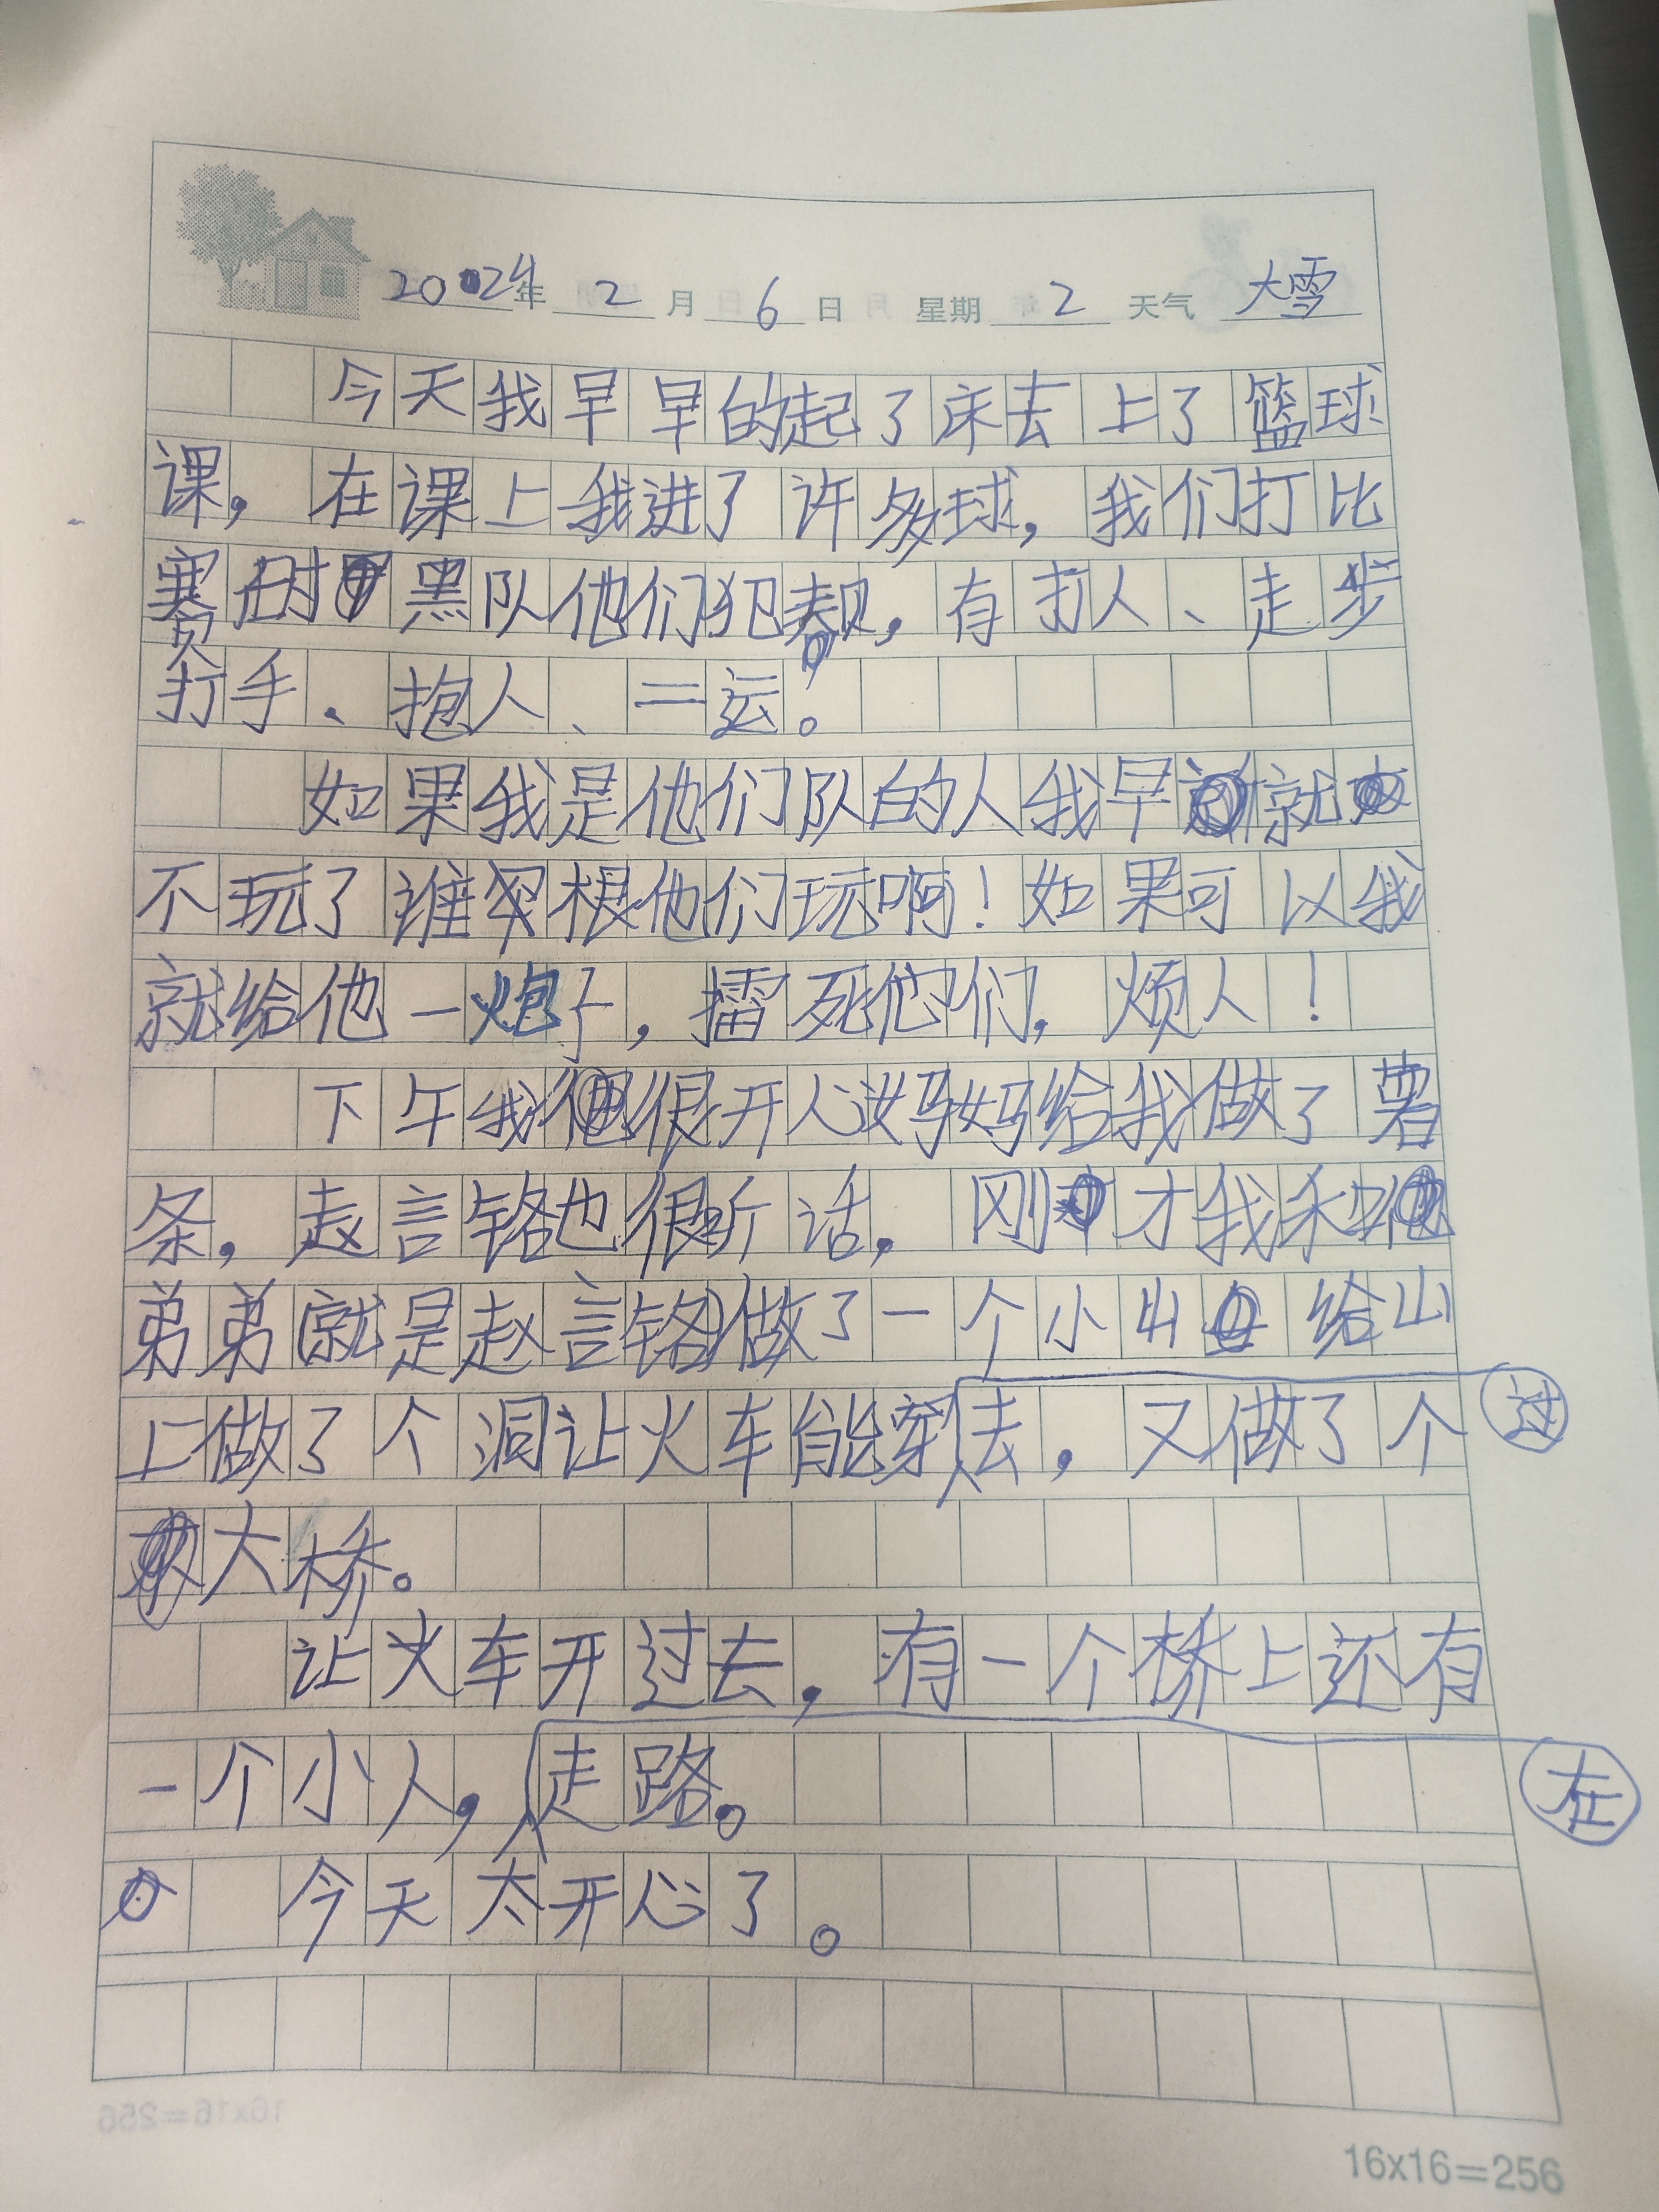 2024年 2 月 6 日 星期 2 天气 大雪
今天我早早的起了床去上了篮球
课，在课上我进了许多球，我们打比
赛时黑队他们犯规，有打人、走步
打手、抱人、二运。
如果我是他们队的人我早就
不玩了谁根他们玩啊！如果可以我
就给他一炮子，擂死他们，烦人！
下午我很开心妈妈给我做了薯
条，赵言铭也很听话，刚才我和
弟弟（就是赵言铭）做了一个小山给山
上做了个洞让火车能穿过去，又做了个
大桥。
让火车开过去，有一个桥上还有
一个小人，在走路。
今天太开心了。
16x16=256